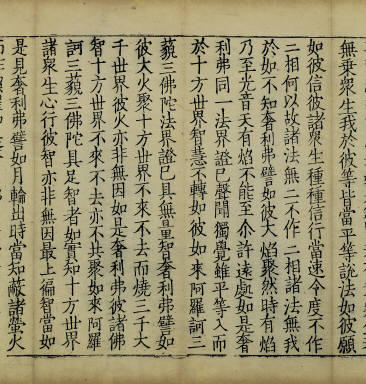 無乘衆生我於彼等皆當平等說法如彼願
如彼信彼諸衆生種種信行當速令度不作
二相何以故諸法無二不作二相諸法無我
於如不知奢利弗譬如彼大焰聚然時有焰
乃至光音天有焰不能至尒許遠處如是奢
利弗同一法界證已聲聞獨覺雖平等入而
於十方世界智慧不轉如彼如來阿羅訶三
藐三佛陀法界證已具無量智奢利弗譬如
彼大火聚十方世界不來不去而燒三千大
千世界彼火亦非無因如是奢利弗彼諸佛
智十方世界不來不去亦不共聚如來阿羅
訶三藐三佛陀具足智者如實知十方世界
諸衆生心行彼智亦非無因最上福智當如
是見奢利弗譬如月輪出時當知蔽諸螢火